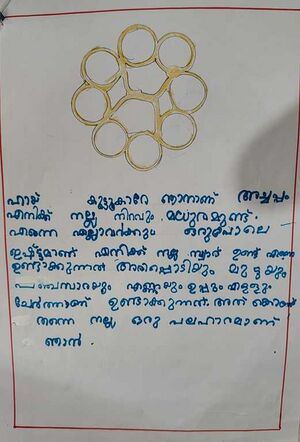 ഹായ് കൂട്ടുകാരേ ഞാനാണ് അച്ചപ്പം
എനിക്ക് നല്ല നിറവും മധുരമുണ്ട്.
എന്നെ എല്ലാവർക്കും ഒരുപോലെ
ഇഷ്ട്ടമാണ് എനിക്ക് നല്ല സ്വാദ് ഉണ്ട് എന്നെ
ഉണ്ടാക്കുന്നത് അരിപ്പൊടിയും മുട്ടയും
പഞ്ചസാരയും എണ്ണയും ഉപ്പും എള്ളും
ചേർത്താണ് ഉണ്ടാക്കുന്നത്. അത് കൊണ്ട്
തന്നെ നല്ല ഒരു പലഹാരമാണ്
ഞാൻ.